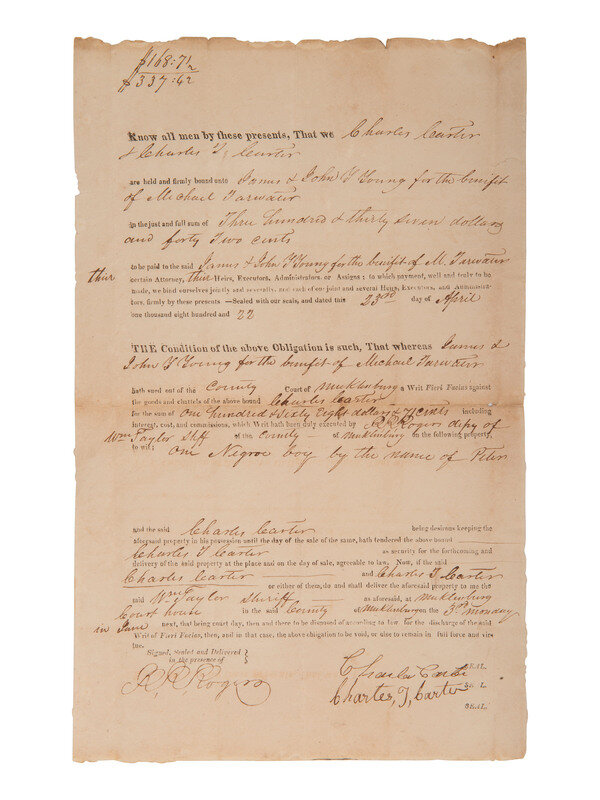 $168:71
$337:42
Know all men by these presents, That we Charles Carter
& Charles T, Carter
are held and firmly bound unto James & John T Young for the benifit
of Michael Tarwater
in the just and full sum of Three hundred & thirty seven dollars
and forty Two cents
to be paid to the said James & John T Young for the benefit of M. Tarwater
thier certain Attorney, thier Heirs, Executors, Administrators, or Assigns: to which payment, well and truly to be
made, we bind ourselves jointly and severally, and each of our joint and several Heirs, Executors, and Administra-
tors, firmly by these presents.—Sealed with our seals, and dated this 23rd day of April
one thousand eight hundred and 22
THE Condition of the above Obligation is such, That whereas James &
John T Young for the benifit of Michael Tarwater
hath sued out of the County Court of Mecklenburg a Writ Fieri Facias against
the goods and chattels of the above bound Charles Carter
for the sum of one hundred & Sixty Eight dollars & 71 cents including
interest, cost, and commissions, which Writ hath been duly executed by R R Rogers depty of
Wm Taylor Shff of the County of Mecklenburg on the following property,
to wit: one Negroe boy by the name of Peter
and the said Charles Carter being desirous keeping the
aforesaid property in his possession until the day of the sale of the same, hath tendered the above bound
Charles T Carter as security for the forthcoming and
delivery of the said property at the place and on the day of sale, agreeable to law. Now, if the said
Charles Carter and Charles T, Carter
or either of them, do and shall deliver the aforesaid property to me the
said Wm Taylor Sheriff as aforesaid, at Mecklenburg
Court house in the said County of Mecklenburg on the 3d Monday
in June next, that being court day, then and there to be disposed of according to law for the discharge of the said
Writ of Fieri Facias, then, and in that case, the above obligation to be void, or else to remain in full force and vir-
tue.
Signed, Sealed and Delivered
in the presence of
R, R Rogers
Charles Carter SEAL.
Charles, T, Carter SEAL.
SEAL.